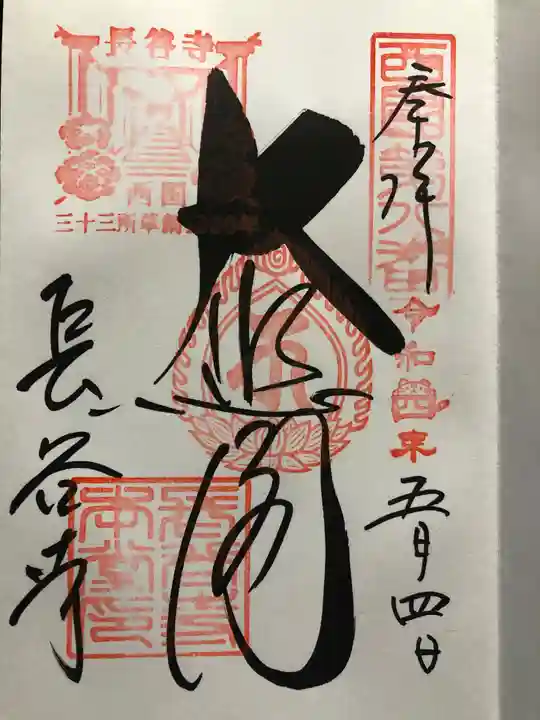 奉拝
西国第八番
令和四年
五月四日
大悲閣
長谷寺
西国
三十三所草創
長谷寺